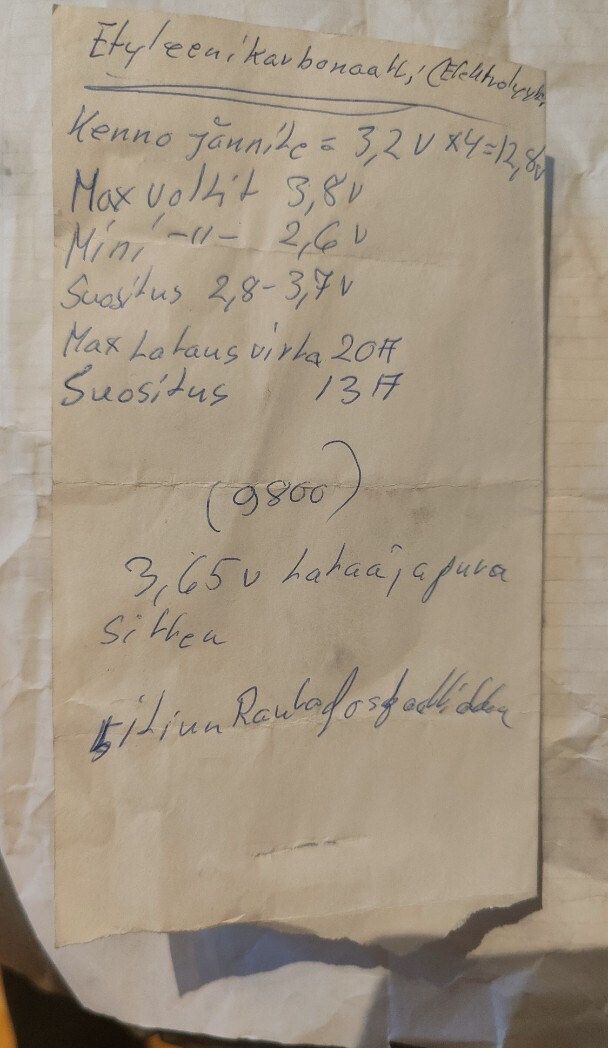 Etyleenikarbonaatti (Elektrolyytti
Kenno jännite = 3,2 V x4=12,8v
Max voltit 3,8v
Mini -"- 2,6v
Suositus 2,8-3,7v
Max Lataus virta 20A
Suositus 13A
(9800)
3,65v Lataa ja pura
Sitten
Litium Rautafosfaatti